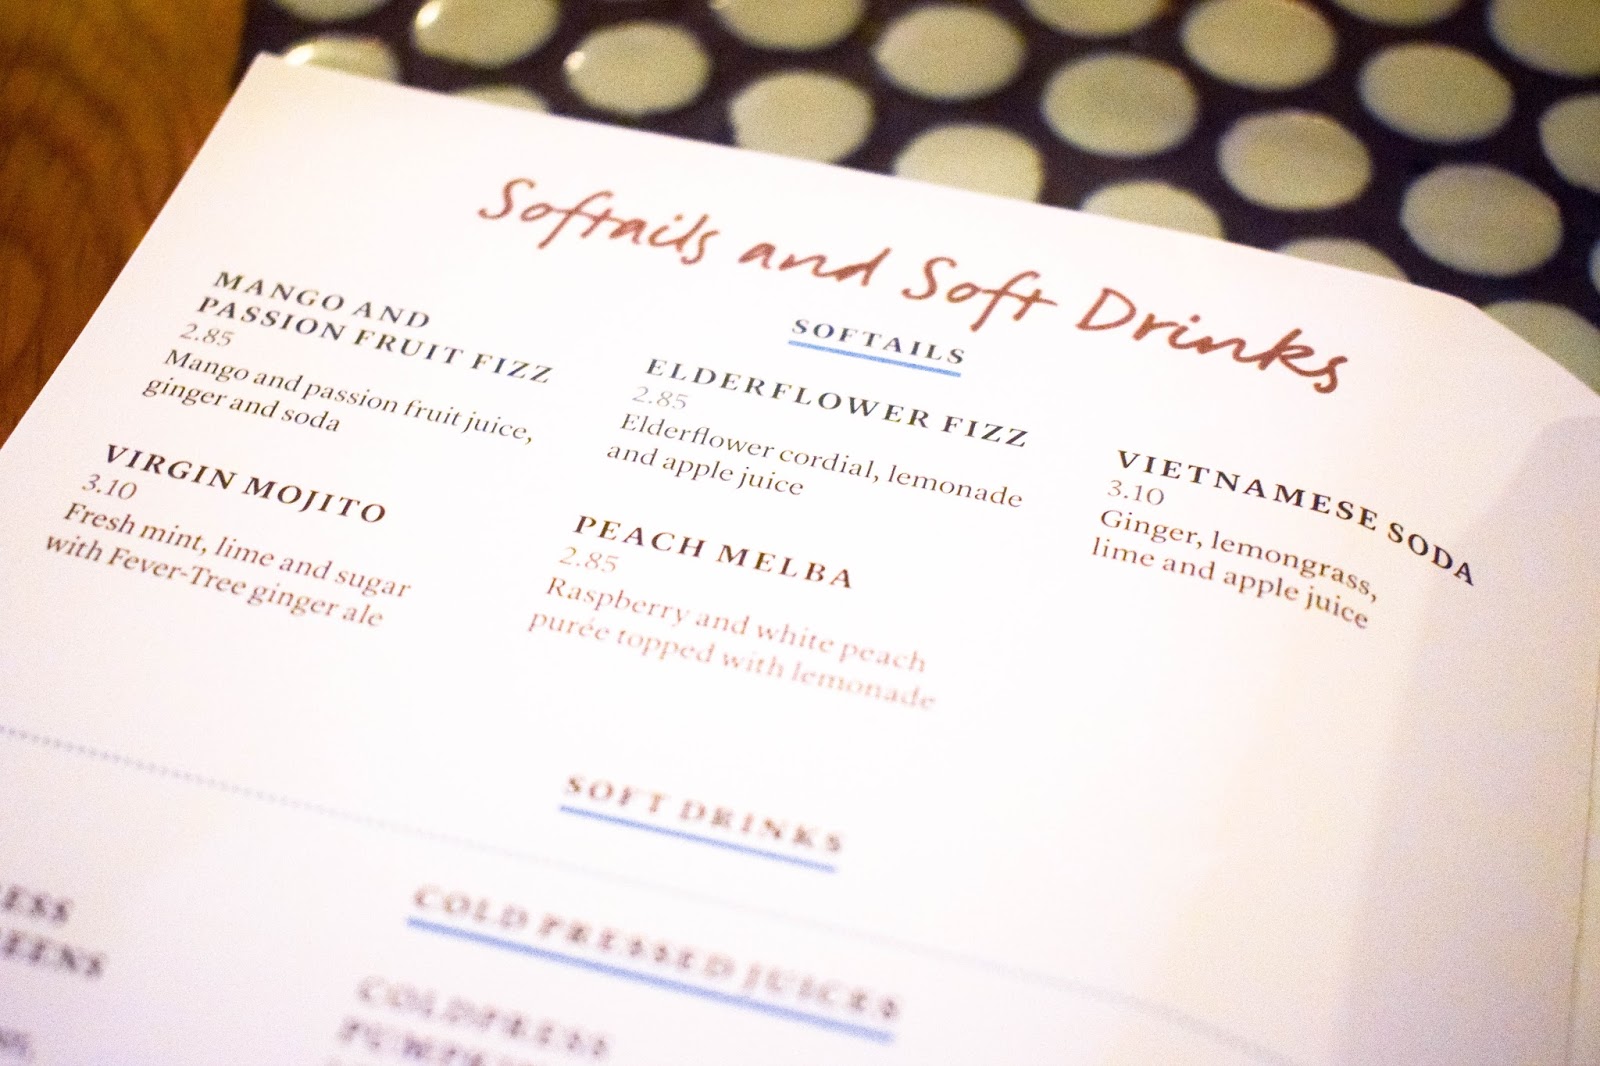 Softails and Soft Drinks
SOFTAILS
MANGO AND
PASSION FRUIT FIZZ
2.85
Mango and passion fruit juice,
ginger and soda
VIRGIN MOJITO
3.10
Fresh mint, lime and sugar
with Fever-Tree ginger ale
ELDERFLOWER FIZZ
2.85
Elderflower cordial, lemonade
and apple juice
PEACH MELBA
2.85
Raspberry and white peach
purée topped with lemonade
VIETNAMESE SODA
3.10
Ginger, lemongrass,
lime and apple juice
SOFT DRINKS
COLD PRESSED JUICES
ESS
EENS
COLDPRESS